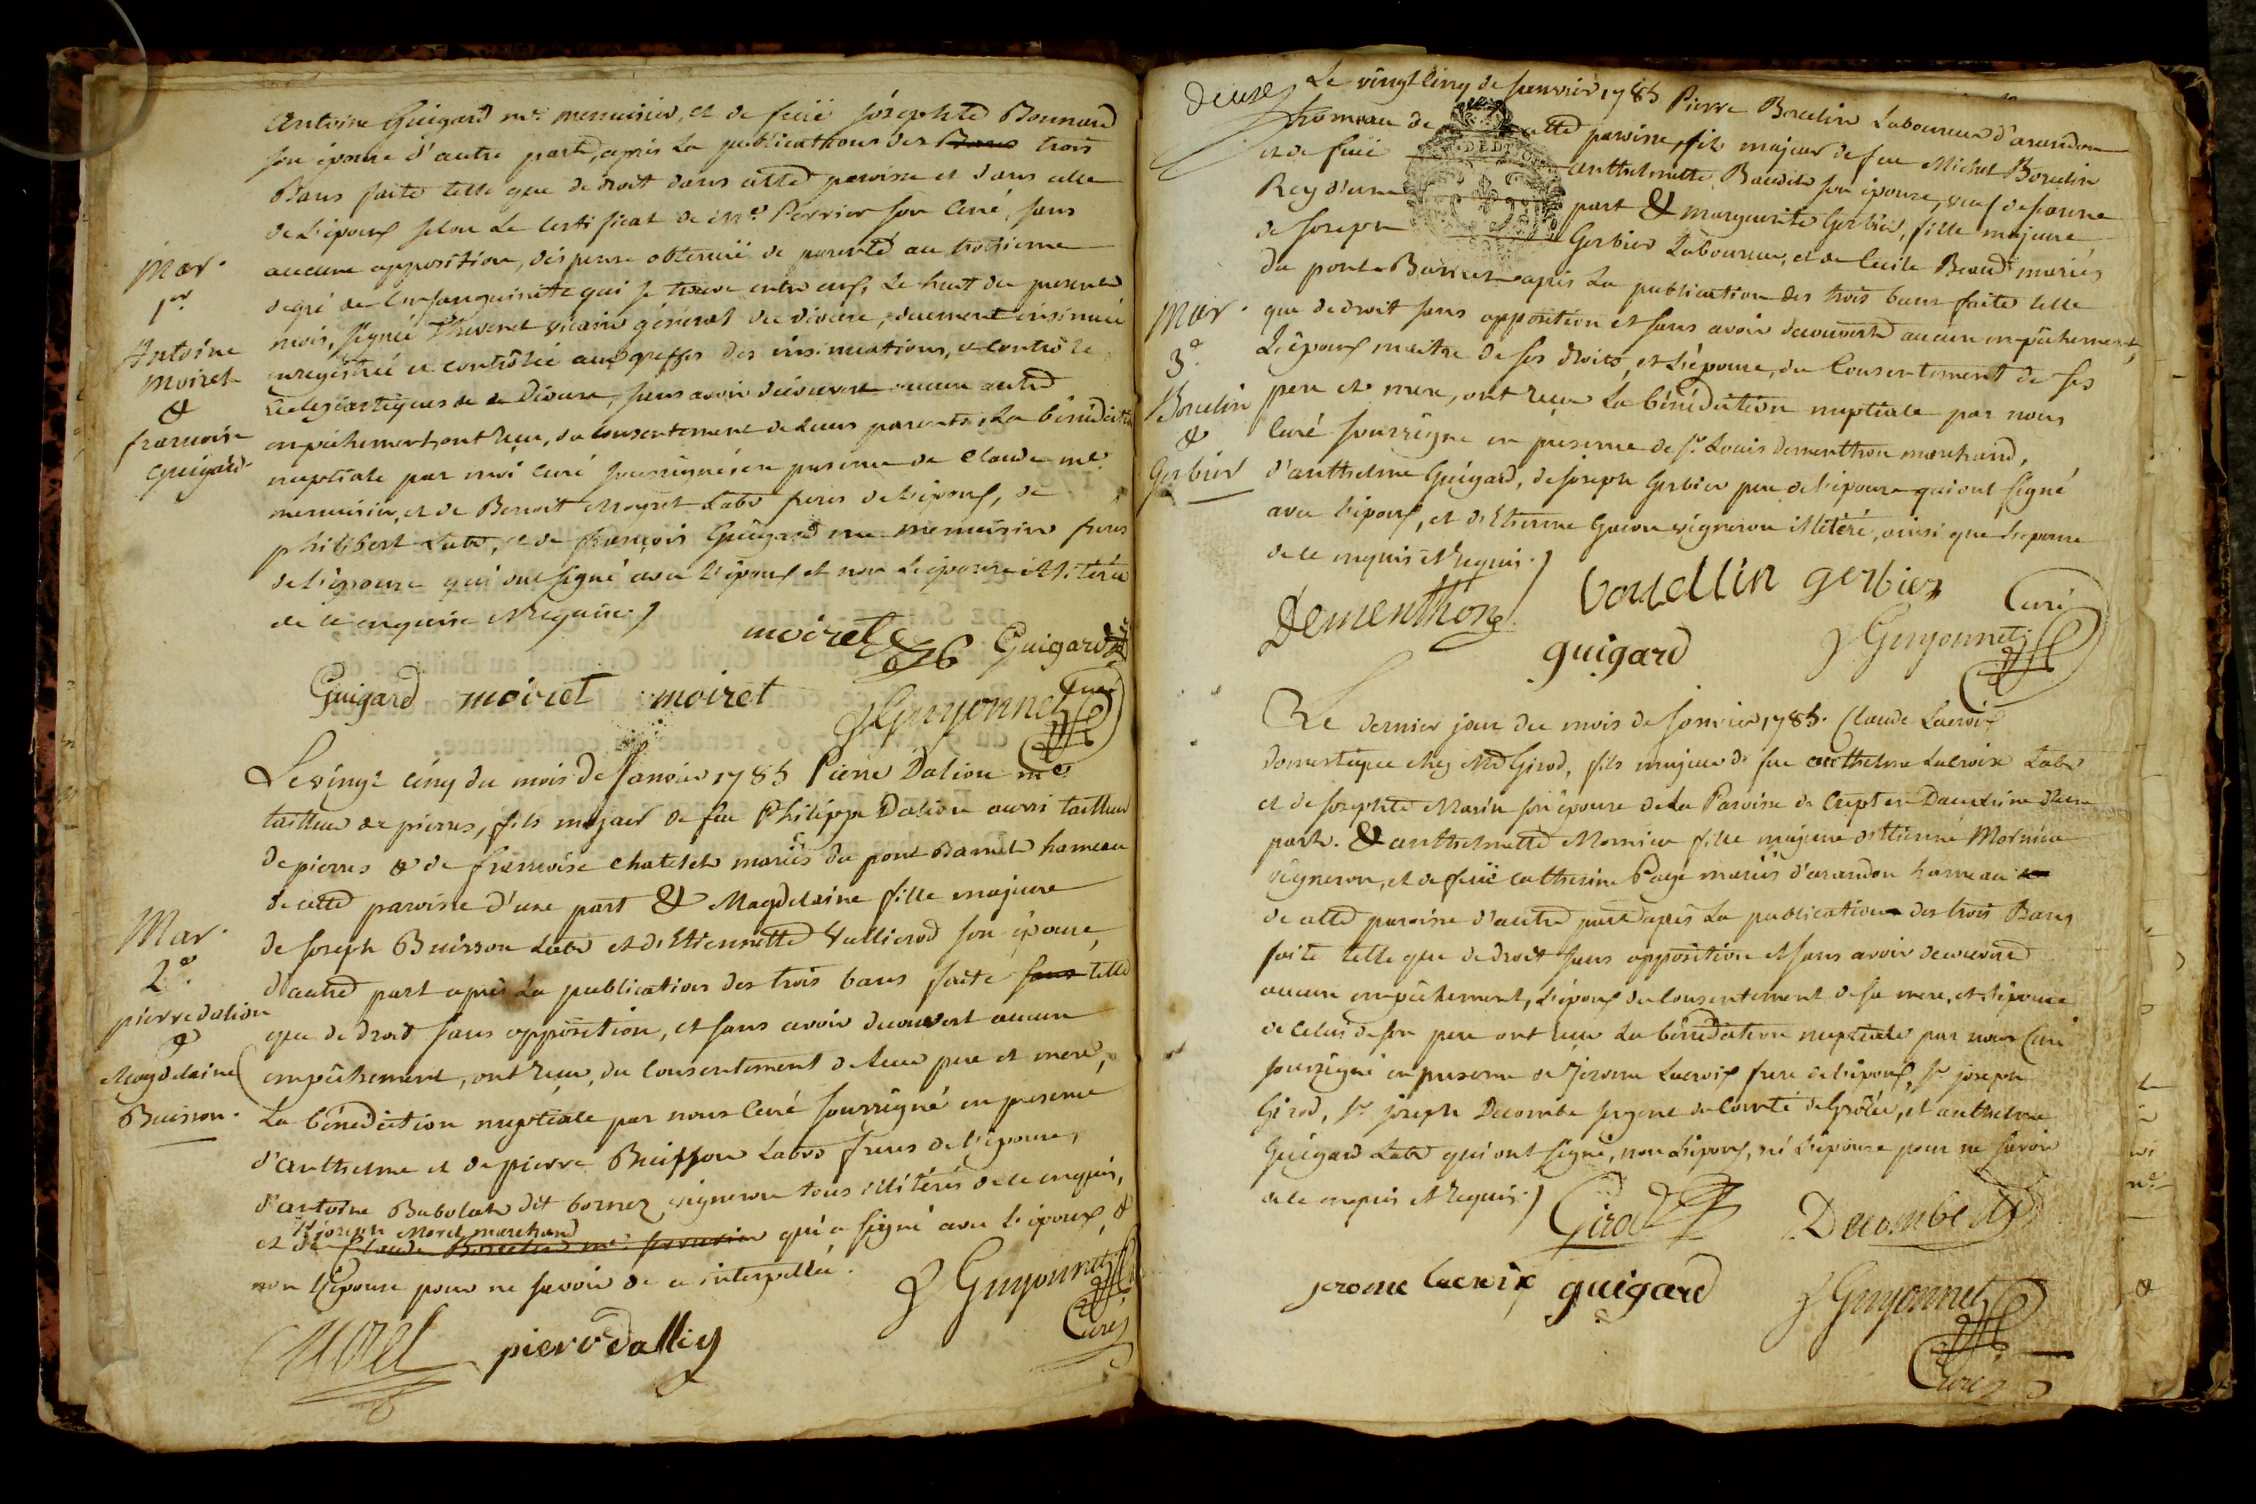 Mar.
1er
Antoine
Moiret
&
francoise
Guigard
Antoine Guigard me. menuisier, et de feüe josephte Bonnard
son épouse d'autre part, après la publications des Bans trois
Bans faite telle que de droit dans cette paroisse et dans celle
de l'époux selon le certificat de Mre Perrier son curé, sans
aucune opposition, dispense obtenuë de parenté au troisieme
degré de consanguinité qui se trouve entre eux, le huit du present
mois, signée Thevenet vicaire géneral du diocese, deuement insinuée
enregistrée et contrôlée aux greffes des insinuations, et contrôle
éclesiastiques de ce Diocese, sans avoir découvert aucun autre
empêchement, ont reçu, du consentement de leurs parents, la bénédiction
nuptiale par moi curé soussigné, en presence de Claude me.
menuisier, et de Benoit Moyret Labr freres de l'époux, de
philibert Labr, et de françois Guigard me menuisier freres
de l'épouse qui ont signé avec l'époux et non l'épouse illitérée
de ce enquise et requise.
moiret Guigard
Guigard moiret moiret
Guyonnet Curé
Mar.
2e.
pierre dalion
&
Magdelaine
Buisson.
Le vingt cinq du mois de Janvier 1785 Pierre Dalion me
tailleur de pierres, fils majeur de feu Philippe Dalion aussi tailleur
de pierres & de francoise chatelet mariés du pont Barret hameau
de cette paroisse d'une part & Magdelaine fille majeure
de joseph Buisson Labr et d'Etiennette Vullierod son épouse,
d'autre part après la publication des trois bans faite sans telle
que de droit sans opposition, et sans avoir decouvert aucun
empêchement, ont reçu, du consentement de leur pere et mere,
la bénédiction nuptiale par nous curé soussigné en presence
d'anthelme et de pierre Buisson Labrs freres de l'épouse,
d'antoine Babolat dit bornez vigneron tous illitérés de ce enquis,
Sr joseph Morel marchand
et de Claude qui a signé avec l'époux, &
non l'épouse pour ne savoir de ce interpellée.
Guyonnet
Curé
Morel pierre dalliy
deuxe
Le vingt cinq de janvier 1785 Pierre Bourlin Laboureur d'arandon
hameau de cette paroisse, fils majeur de feu Michel Bourlin
et de feüe Anthelmette Baudet son épouse, veuf de jeanne
Rey d'une part & marguerite Gerbier, fille majeure
de joseph Gerbier Laboureur, et de Cecile Beaud mariés
du pont Barret après la publication des trois bans faite telle
que de droit sans opposition et sans avoir decouvert aucun empêchement,
Mar.
3e.
Bourlin
&
Gerbier
L'époux maitre de ses droits, et l'épouse, du consentement de ses
pere et mere, ont reçu la bénédiction nuptiale par nous
Curé soussigné en presence de Sr Louis dementhon marchand,
d'anthelme Guigard, de joseph Gerbier pere de l'épouse qui ont signé
avec l'époux, et d'Etienne Gacon vigneron illitéré, ainsi que l'épouse
de ce enquis et requis.
Dementhon bourllin gerbier Curé
guigard Guyonnet
Le dernier jour du mois de Janvier 1785. Claude Lacroix
domestique chez Mr Girod, fils majeur de feu anthelme Lacroix Labr
et de josephte Marin son épouse de la Paroisse de Crept en Dauphiné d'une
part. & anthelmette Mornieu fille majeure d'Etienne Mornieu
vigneron, et de feüe catherine Page mariés d'arandon hameau
de cette paroisse d'autre part après la publication des trois Bans
faite telle que de droit sans opposition et sans avoir decouvert
aucun empêchement, l'époux du consentement de sa mere, et l'épouse
de celui de son pere ont reçu la bénédiction nuptiale par nous Curé
soussigné en presence de Jerome Lacroix frere de l'époux, Sr joseph
Girod, Sr joseph Decombe sergent du Comté de Grôlée, et anthelme
Guigard Labr qui ont signé, non l'époux, ni l'épouse pour ne savoir
de ce enquis et requis.
Girod Decombe
jerome lacroix guigard Guyonnet
Curé